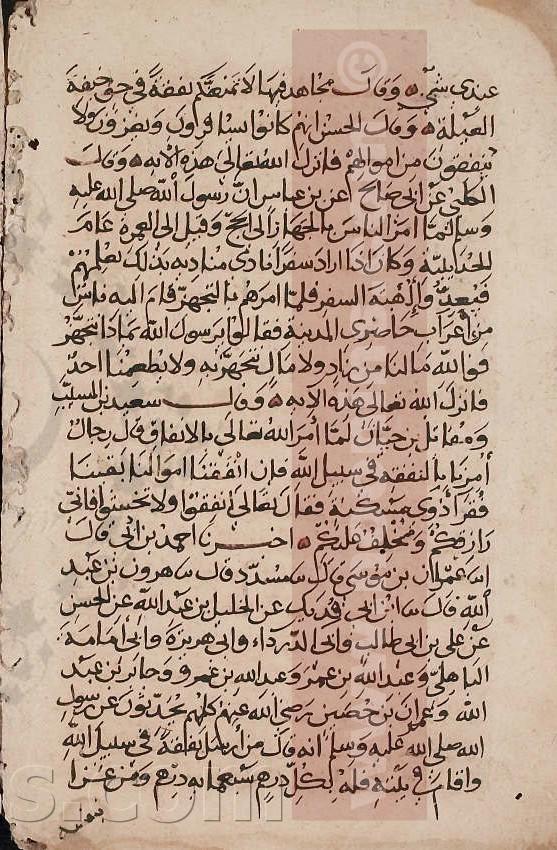 عندي شيء ه وقال مجاهد فيها لا تمنعكم نفقة في حق خيفة
العيلة ه وقال الحسن انهم كانوا يسافرون ويغزون ولا
ينفقون من اموالهم فانزل الله تعالى هذه الاية ه وقال
الكلبي عن ابي صالح عن بن عباس ان رسول الله صلى الله عليه
وسلم لما امر الناس بالجهاز الى الحج وقيل الى العمرة عام
الحديبية وكان اذا اراد سفرا نادى مناديه بذلك يعلمهم
فيعدوا اهبة السفر فلما امرهم بالتجهز قام اليه ناس
من اعراب حاضري المدينة فقالوا يرسول الله بماذا نتجهز
فوالله ما لنا من زاد ولا مال نتجهز به ولا يطعمنا احد
فانزل الله تعالى هذه الاية ه وقال سعيد بن المسيب
ومقاتل بن حيان لما امر الله تعالى بالانفاق قال رجال
أمرنا بالنفقه في سبيل الله فان انفقنا اموالنا بقينا
فقرآ ذوي مسكنة فقال تعالى انفقوا ولا تخشوا فاني
رازقكم ومخلف عليكم ه اخبرنا احمد بن ابي قال
عمران بن موسى قال مسدد قال هرون بن عبد
الله قال بن ابي فديك عن الخليل بن عبد الله عن الحسن
عن علي بن ابي طالب وابي الدرداء وابي هريرة وابي امامة
الباهلي وعبد الله بن عمر وعبد الله بن عمرو وجابر بن عبد
الله وعمران بن حصين رضي الله عنهم كلهم يحدثون عن رسول
الله صلى الله عليه وسلم انه قال من ارسل بنفقة في سبيل الله
واقام في بيته فله بكل درهم سبعمايه درهم ومن غزا